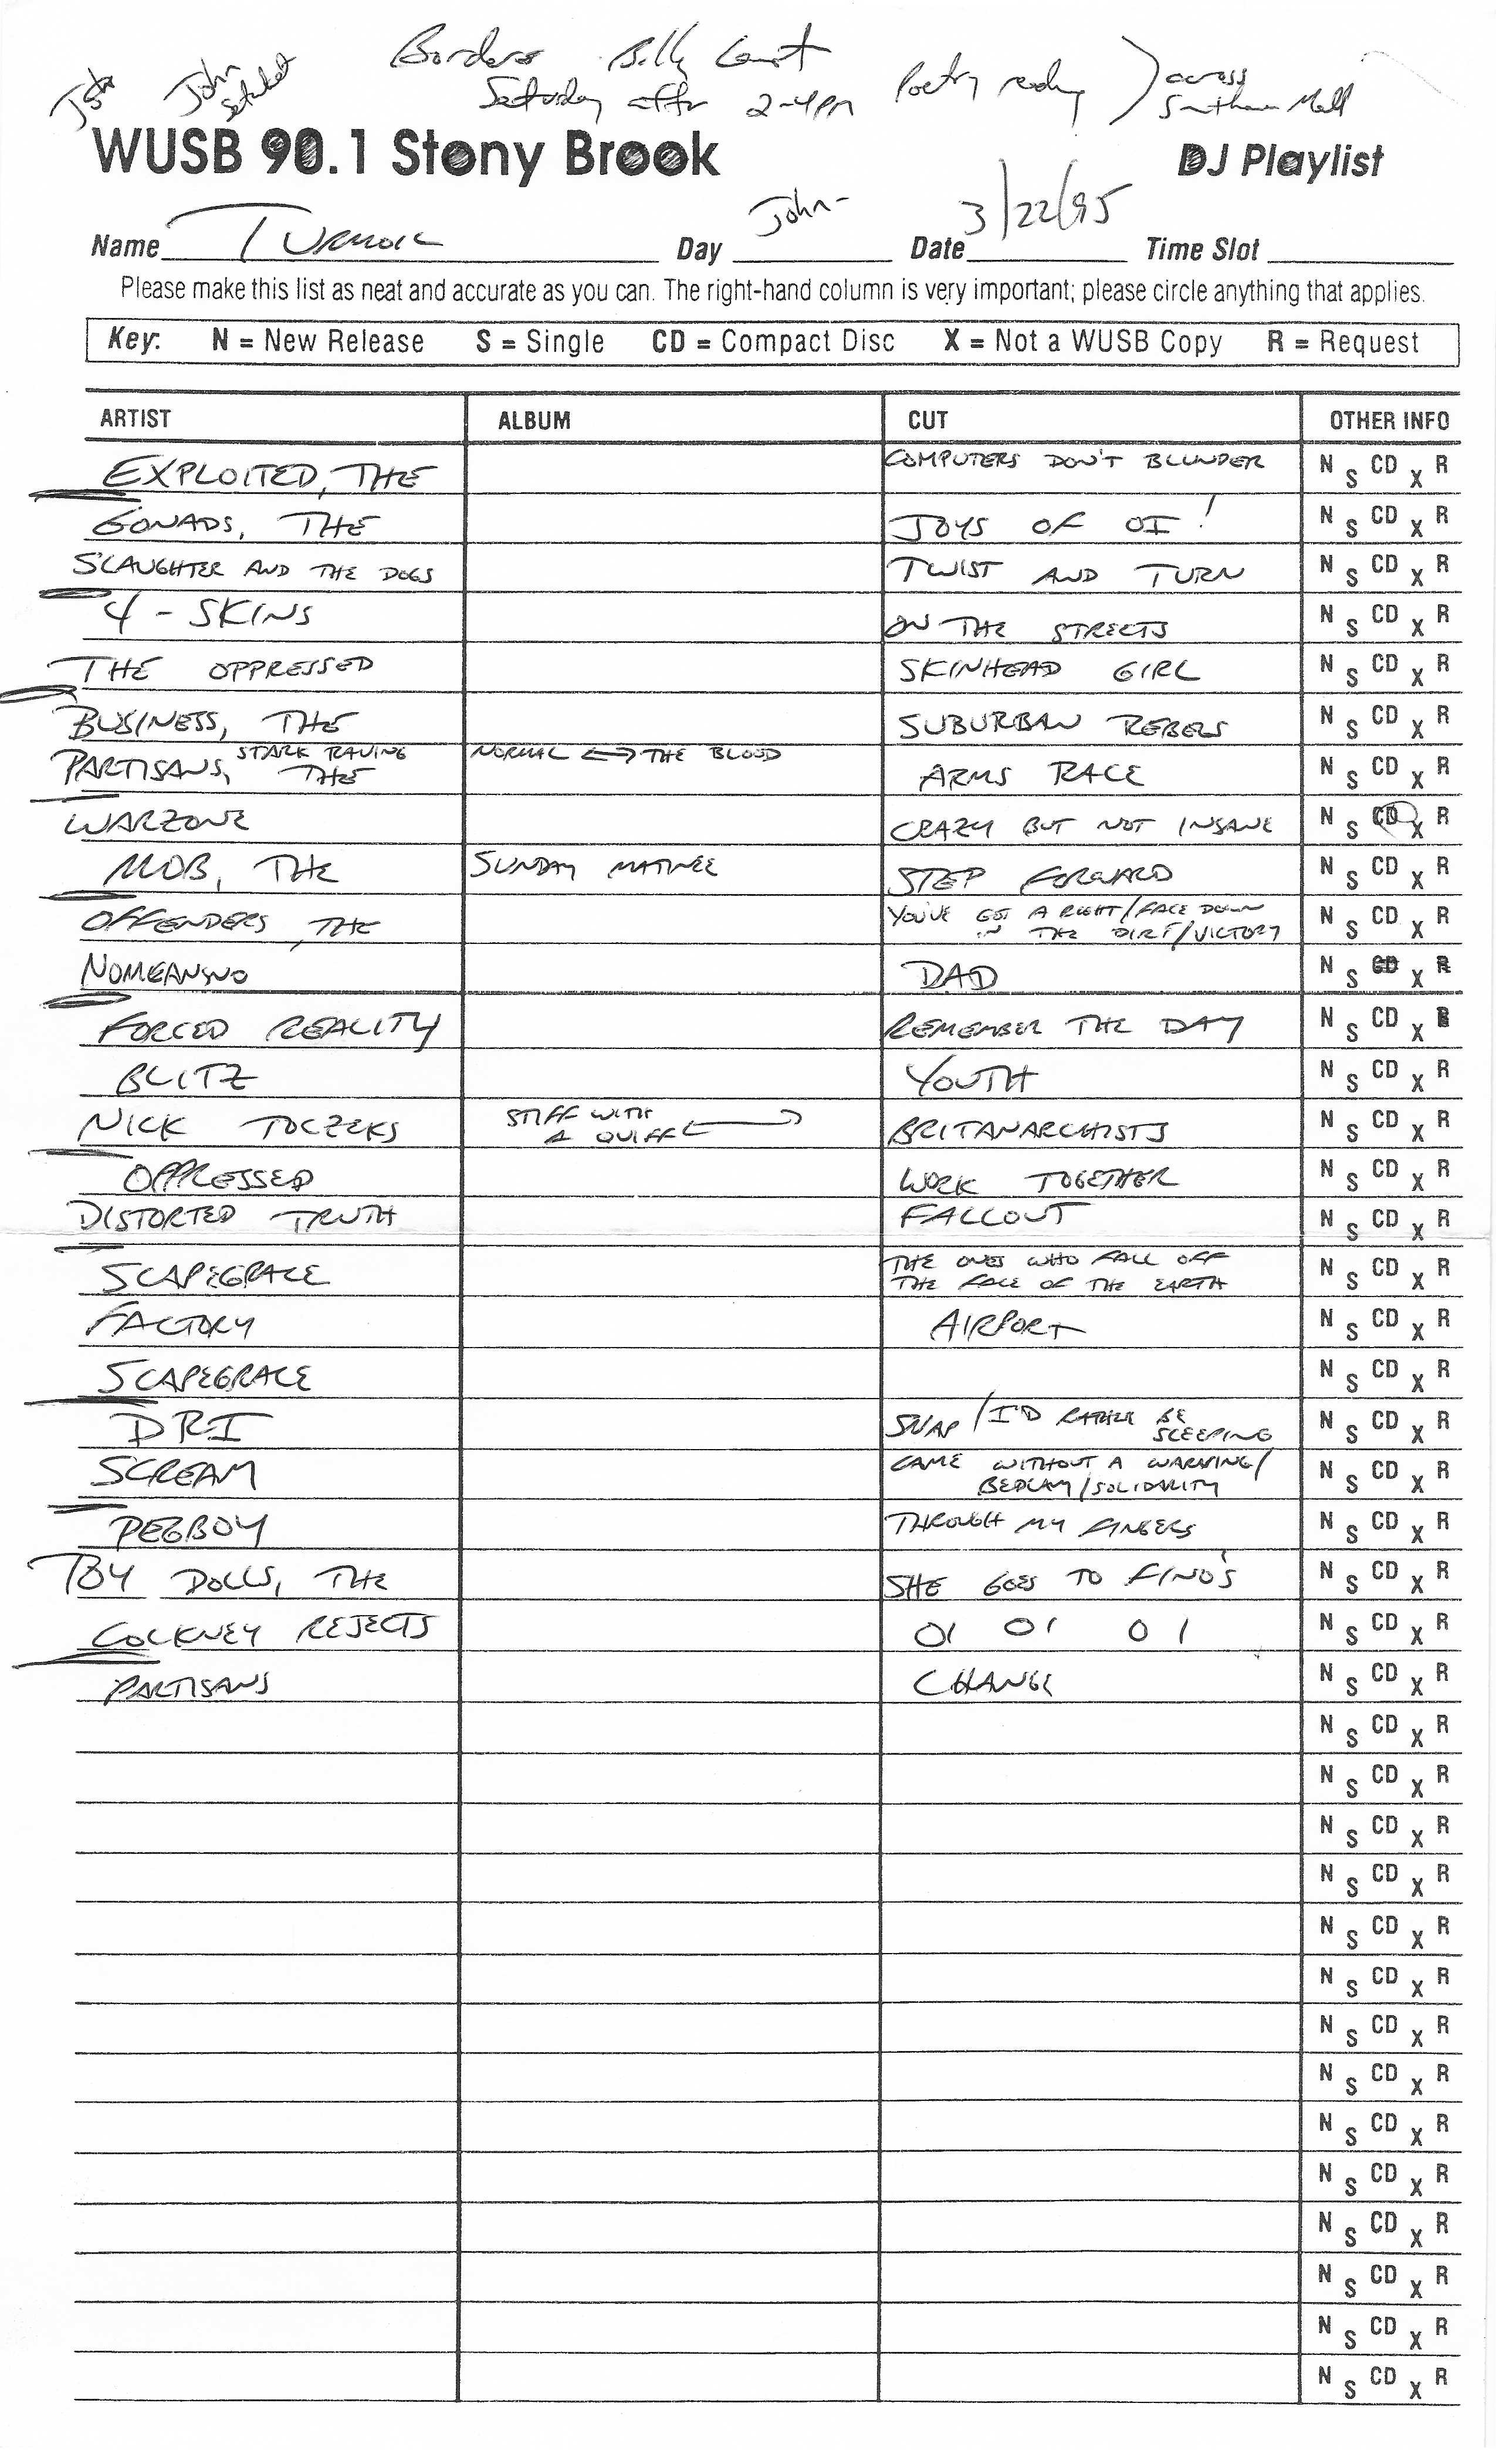 Borders Billy
Saturday after 2-4pm Poetry reading ) across
John John Setauket Mall
WUSB 90.1 Stony Brook DJ Playlist
Name TURMOIL Day John- Date 3/22/95 Time Slot
Please make this list as neat and accurate as you can. The right-hand column is very important; please circle anything that applies.
Key: N = New Release S = Single CD = Compact Disc X = Not a WUSB Copy R = Request
ARTIST ALBUM CUT OTHER INFO
EXPLOITED, THE COMPUTERS DON'T BLUNDER N S CD X R
GONADS, THE JOYS OF OI! N S CD X R
SLAUGHTER AND THE DOGS TWIST AND TURN N S CD X R
4-SKINS ON THE STREETS N S CD X R
THE OPPRESSED SKINHEAD GIRL N S CD X R
BUSINESS, THE SUBURBAN REBELS N S CD X R
STARK RAVING NORMAL <-> THE BLOOD
PARTISANS, THE ARMS RACE N S CD X R
WARZONE CRAZY BUT NOT INSANE N S CD X R
MOB, THE SUNDAY MATINEE STEP FORWARD N S CD X R
OFFENDERS, THE YOU'VE GOT A RIGHT/FACE DOWN IN THE DIRT/VICTORY N S CD X R
NOMEANSNO DAD N S CD X R
FORCED REALITY REMEMBER THE DAY N S CD X R
BLITZ YOUTH N S CD X R
NICK TOCZEKS STIFF WITH A QUIFF <-> BRITANARCHISTS N S CD X R
OPPRESSED WORK TOGETHER N S CD X R
DISTORTED TRUTH FALLOUT N S CD X R
SCAPEGRACE THE ONES WHO FALL OFF THE FACE OF THE EARTH N S CD X R
FACTORY AIRPORT N S CD X R
SCAPEGRACE N S CD X R
DRI SNAP/I'D RATHER BE SLEEPING N S CD X R
SCREAM CAME WITHOUT A WARNING/ BEDLAM/SOLIDARITY N S CD X R
PEGBOY THROUGH MY FINGERS N S CD X R
TOY DOLLS, THE SHE GOES TO FINO'S N S CD X R
COCKNEY REJECTS OI OI OI N S CD X R
PARTISANS CHANGE N S CD X R
N S CD X R
N S CD X R
N S CD X R
N S CD X R
N S CD X R
N S CD X R
N S CD X R
N S CD X R
N S CD X R
N S CD X R
N S CD X R
N S CD X R
N S CD X R
N S CD X R